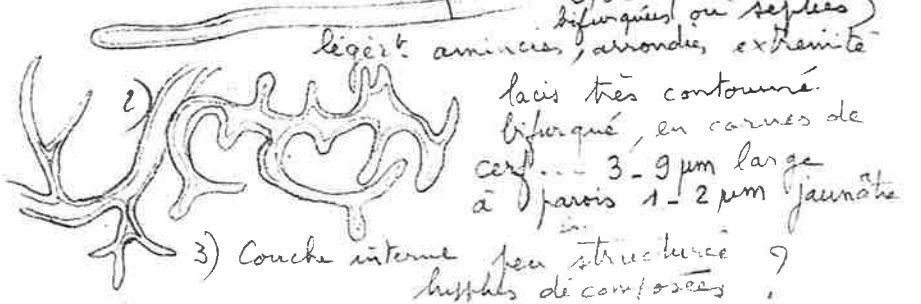 bifurquées ou septées)
légèrt. amincies, arrondies, extrémité
2)
lacis très contourné.
bifurqué, en cornes de
cerf... 3-9 µm large
à parois 1-2 µm jaunâtre
3) Couche interne peu structurée ?
hyphes décomposées !